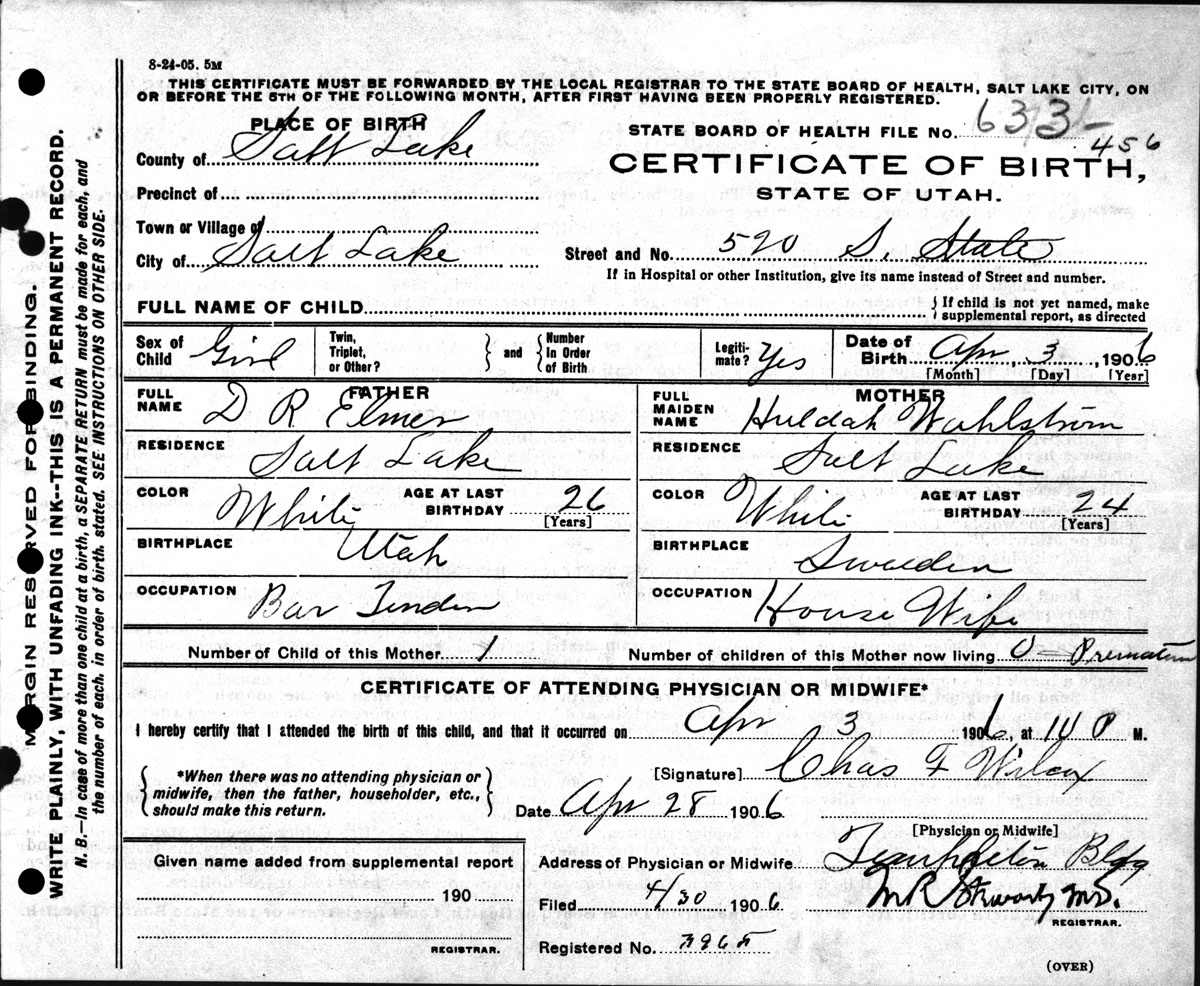 8-24-05. 5M
THIS CERTIFICATE MUST BE FORWARDED BY THE LOCAL REGISTRAR TO THE STATE BOARD OF HEALTH, SALT LAKE CITY, ON
OR BEFORE THE 5TH OF THE FOLLOWING MONTH, AFTER FIRST HAVING BEEN PROPERLY REGISTERED.
PLACE OF BIRTH
County of Salt Lake
Precinct of
Town or Village of
City of Salt Lake
STATE BOARD OF HEALTH FILE No. 633
456
CERTIFICATE OF BIRTH,
STATE OF UTAH.
Street and No. 520 S. State
If in Hospital or other Institution, give its name instead of Street and number.
FULL NAME OF CHILD
{ If child is not yet named, make
supplemental report, as directed
Sex of Child Girl
Twin, Triplet, or Other? } and { Number In Order of Birth
Legiti- mate? Yes
Date of Birth Apr, 3, 1906
[Month] [Day] [Year]
FATHER
FULL NAME D R Elmer
RESIDENCE
Salt Lake
COLOR White AGE AT LAST BIRTHDAY 26
[Years]
BIRTHPLACE Utah
OCCUPATION
Bar Tender
MOTHER
FULL MAIDEN NAME Huldah Wahlstrom
RESIDENCE
Salt Lake
COLOR White AGE AT LAST BIRTHDAY 24
[Years]
BIRTHPLACE
Sweden
OCCUPATION
House Wife
Number of Child of this Mother 1 Number of children of this Mother now living 0 - Premature
CERTIFICATE OF ATTENDING PHYSICIAN OR MIDWIFE*
I hereby certify that I attended the birth of this child, and that it occurred on Apr 3 1906, at P M.
{ *When there was no attending physician or
midwife, then the father, householder, etc.,
should make this return. }
[Signature] Chas F Wilcox
Date Apr 28 1906
[Physician or Midwife]
Given name added from supplemental report
190
REGISTRAR.
Address of Physician or Midwife Templeton Bldg
Filed 4/30 1906 M.D.
REGISTRAR.
Registered No.
(OVER)
MARGIN RESERVED FOR BINDING.
WRITE PLAINLY, WITH UNFADING INK--THIS IS A PERMANENT RECORD.
N. B.—In case of more than one child at a birth, a SEPARATE RETURN must be made for each, and
the number of each, in order of birth, stated. SEE INSTRUCTIONS ON OTHER SIDE.